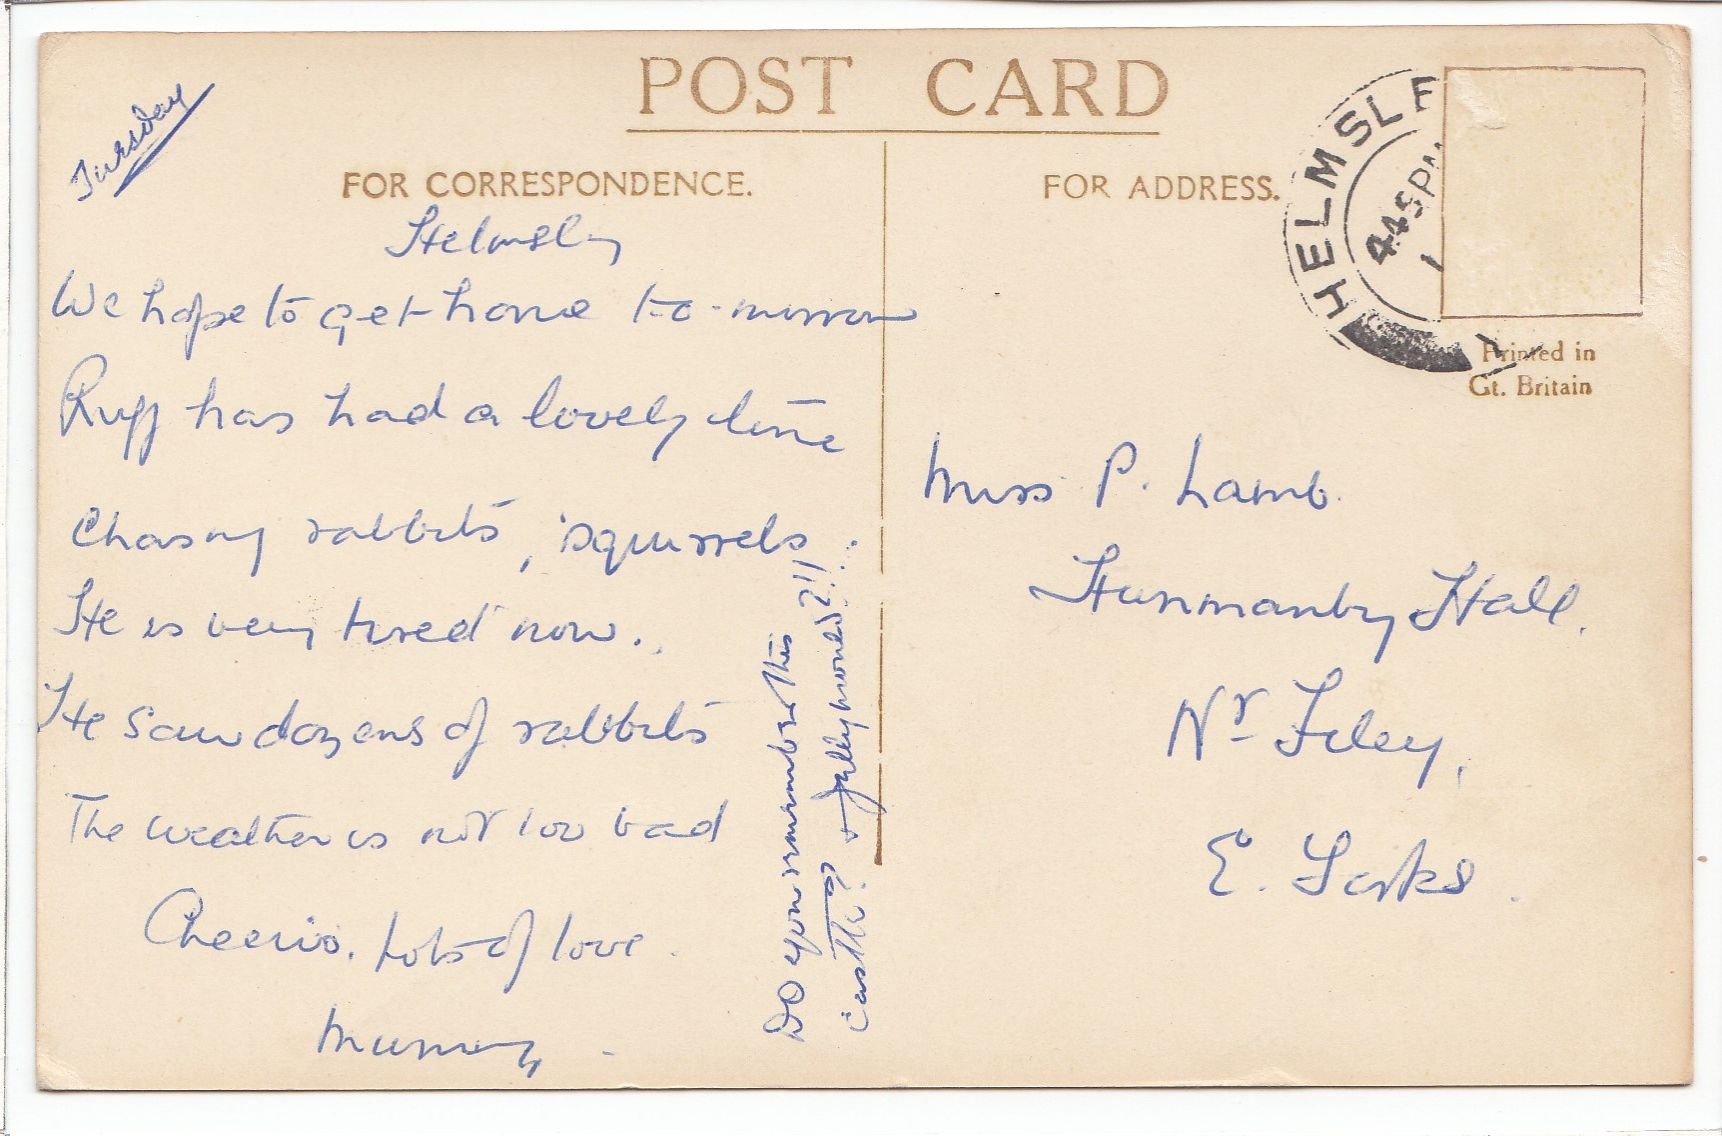 POST CARD
Tuesday
FOR CORRESPONDENCE.
FOR ADDRESS.
HELMSLE
4 45 PM
1
Printed in
Gt. Britain
Helmsley
We hope to get home to-morrow
Ruff has had a lovely time
Chasing rabbits, squirrels.
He is very tired now.
He saw dozens of rabbits
The weather is not too bad
Cheerio. Lots of love.
Mummy.
Do you remember this
castle? & Jellymould?!!
Miss P. Lamb.
Hunmanby Hall.
Nr Filey,
E. Yorks.